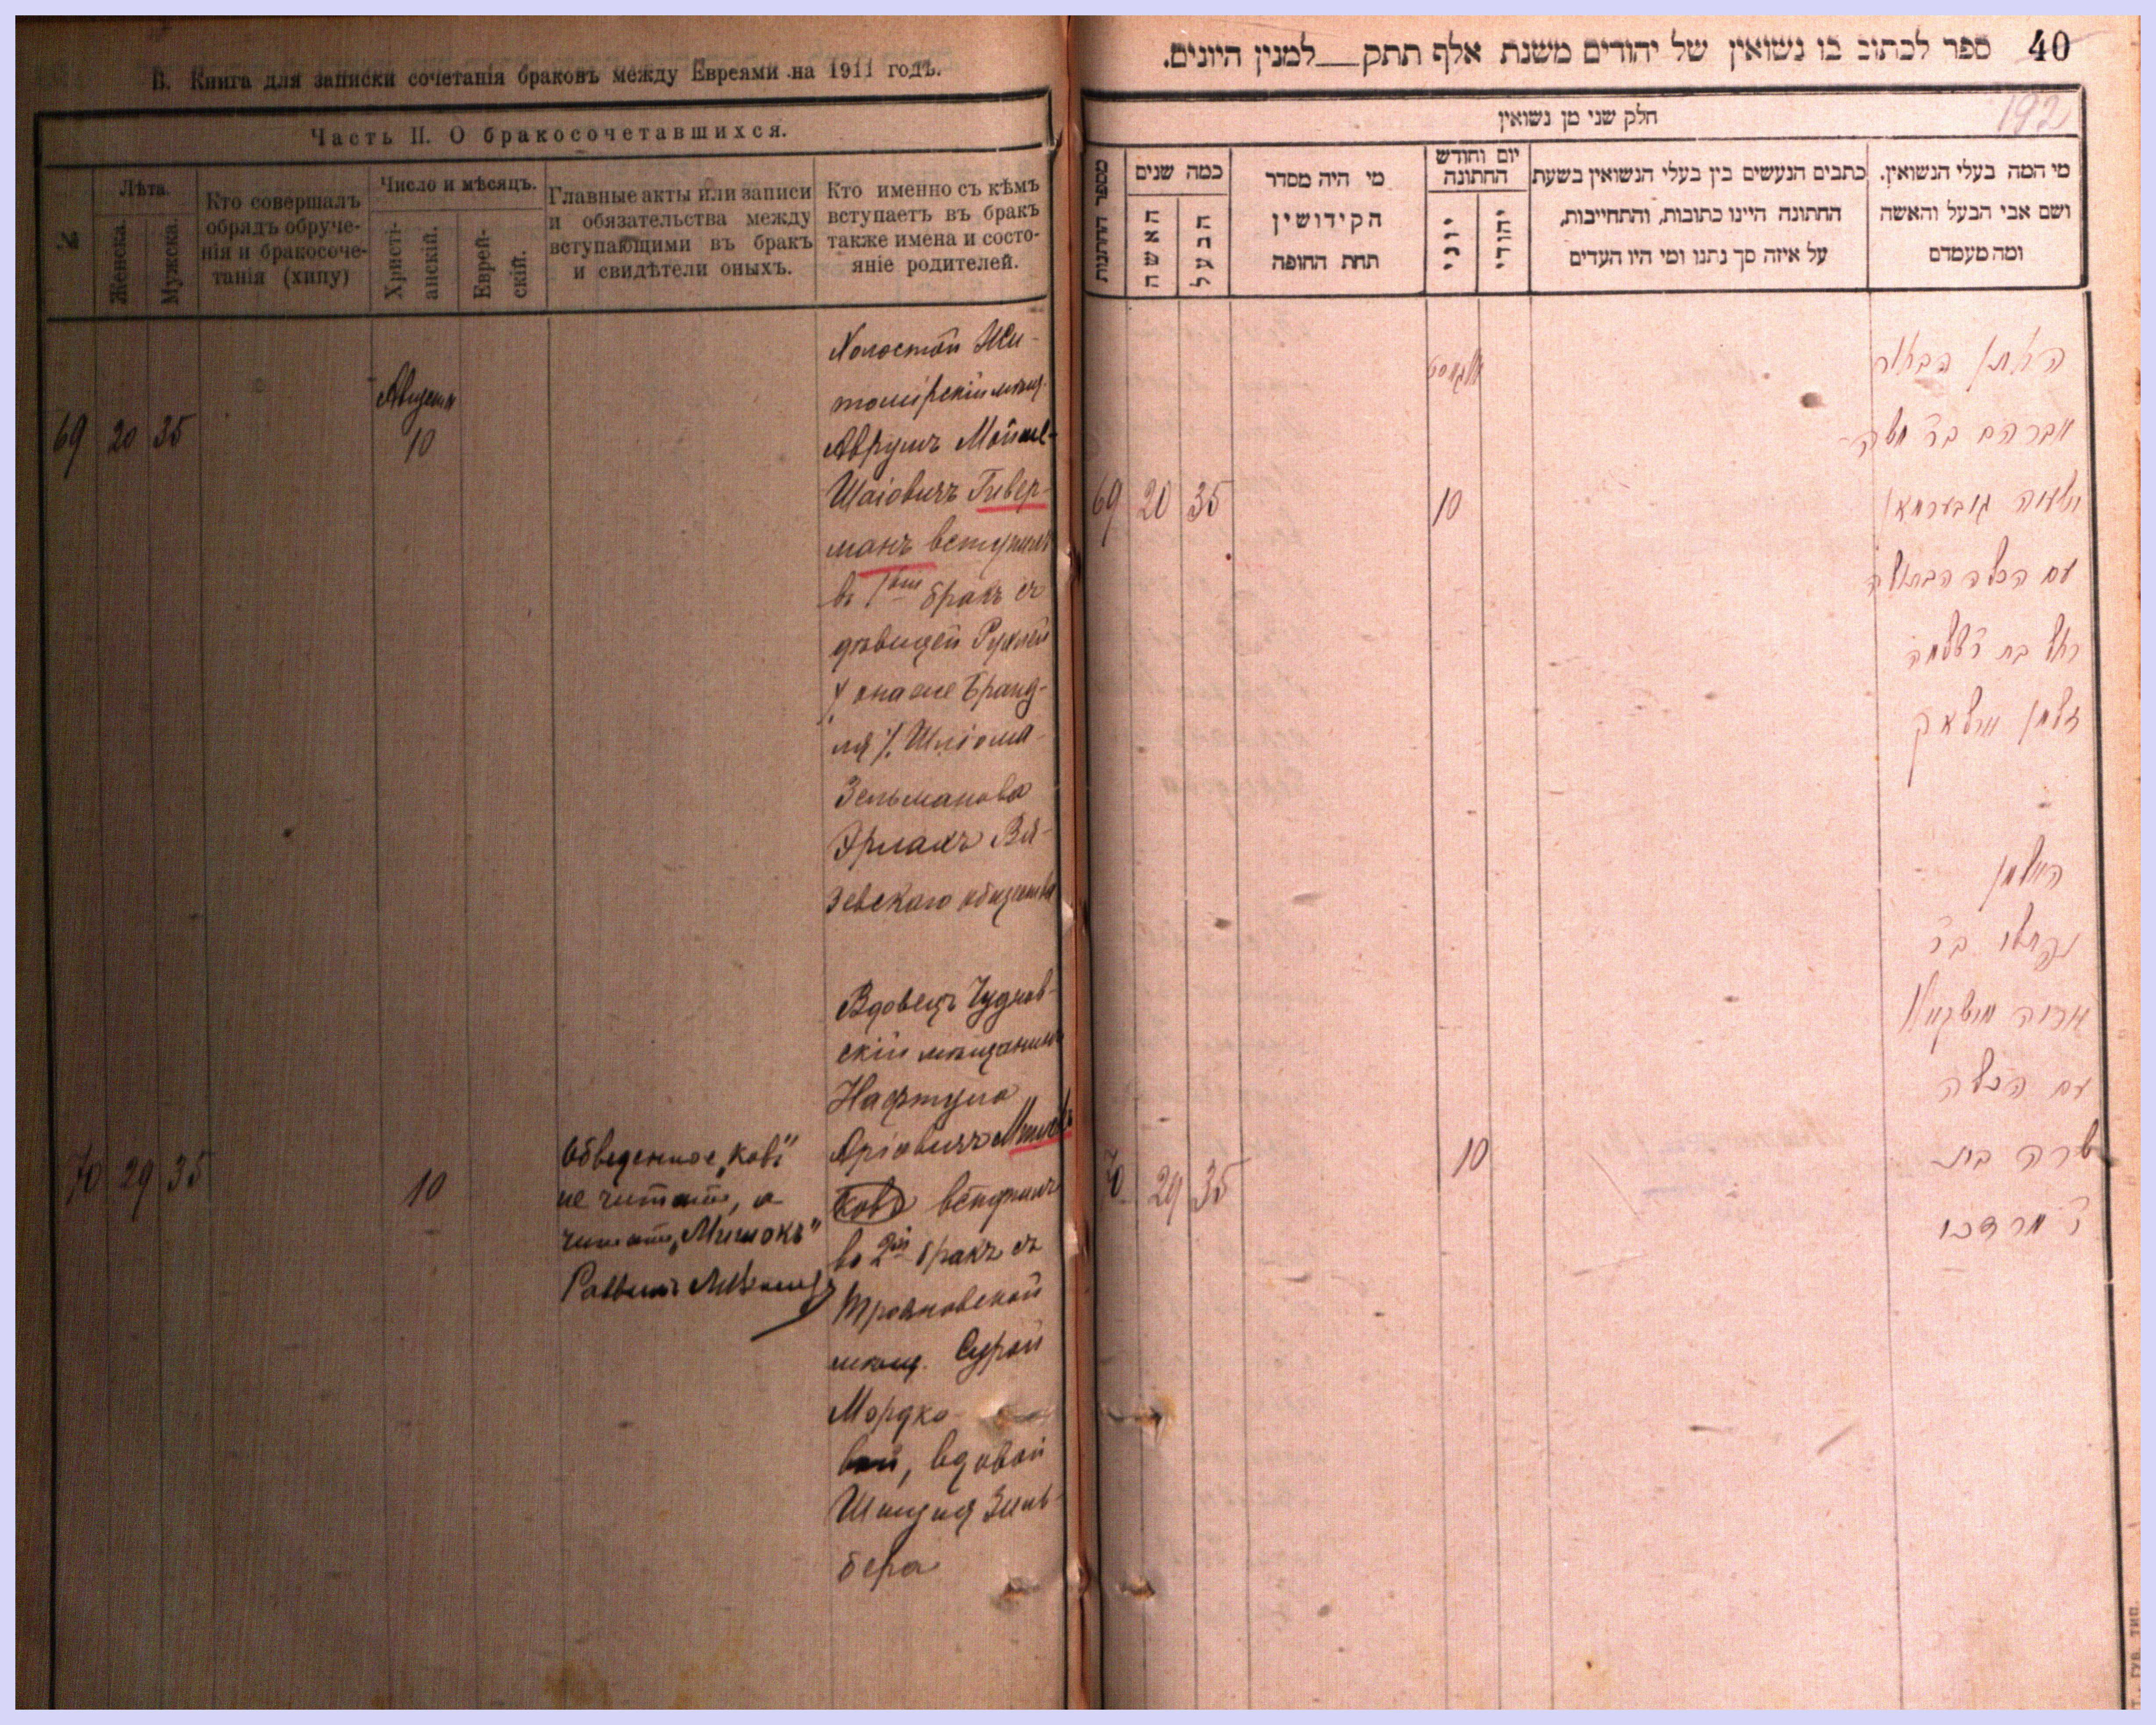 В. Книга для записки сочетанія браковъ между Евреями на 1911 годъ.
Часть II. О бракосочетавшихся.
№
Лѣта.
Женска.
Мужска.
Кто совершалъ
обрядъ обруче-
нія и бракосоче-
танія (хипу)
Число и мѣсяцъ.
Христі-
анскій.
Еврей-
скій.
Главные акты или записи
и обязательства между
вступающими въ бракъ
и свидѣтели оныхъ.
Кто именно съ кѣмъ
вступаетъ въ бракъ
также имена и состо-
яніе родителей.
69 20 35
Августа
10
Холостой Жи-
томірскій мѣщ.
Аврумъ Мойше-
Шаіовичъ Гивер-
манъ вступилъ
въ 1ый бракъ съ
дѣвицей Рухлей
/ она же Бранд-
ля / Шліома-
Зельманова
Эрлахъ Вя-
зевскаго общества
70 29 35
10
Обведенное „ковъ"
не читать, а
читать „Мишокъ"
Раввинъ
Вдовецъ Чуднов-
скій мѣщанинъ
Нафтула
Аріовичъ
ковъ вступилъ
въ 2ой бракъ съ
Трояновской
мѣщ. Сурой
Мордко-
вой, вдовой
Зиль-
бера
40 ספר לכתוב בו נשואין של יהודים משנת אלף תתק__למנין היונים.
192
חלק שני מן נשואין
מי המה בעלי הנשואין.
ושם אבי הבעל והאשה
ומה מעמדם
כתבים הנעשים בין בעלי הנשואין בשעת
החתונה היינו כתובות, והתחייבות,
על איזה סך נתנו ומי היו העדים
יום וחודש
החתונה
יהודי
יוני
מי היה מסדר
הקידושין
תחת החופה
כמה שנים
הבעל
האשה
מספר
69 20 35
אווגוסט
10
החתן הבחור
אברהם בר משה
ישעיה גיבערמאן
עם הכלה הבתולה
רחל בת ר' שלמה
זלמן ערלאק
70 29 35
10
האלמן
נפתלי בר
אריה
עם הכלה
שרה בת
ר' מרדכי